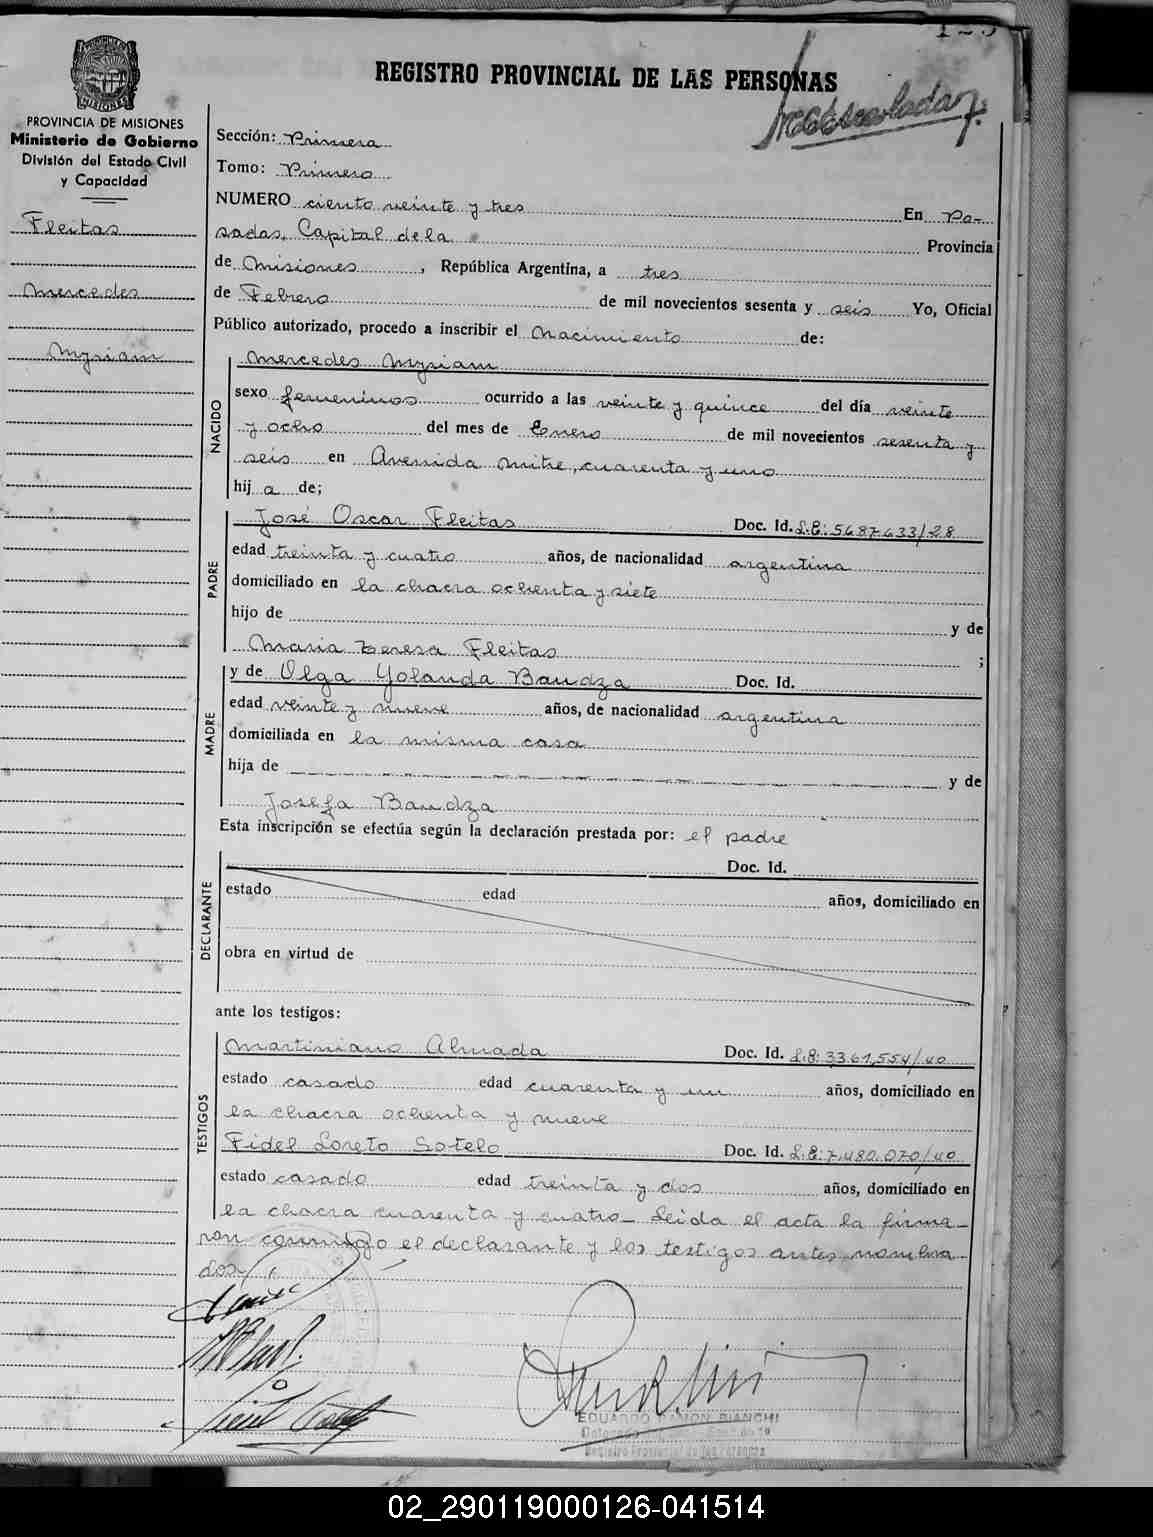 123
REGISTRO PROVINCIAL DE LAS PERSONAS
PROVINCIA DE MISIONES
Ministerio de Gobierno
División del Estado Civil
y Capacidad
Fleitas
Mercedes
Myriam
Sección: Primera
Tomo: Primero
NUMERO ciento veinte y tres En Po-
sadas, Capital de la Provincia
de Misiones, República Argentina, a tres
de Febrero de mil novecientos sesenta y seis Yo, Oficial
Público autorizado, procedo a inscribir el Nacimiento de:
NACIDO
Mercedes Myriam
sexo femenino ocurrido a las veinte y quince del día veinte
y ocho del mes de Enero de mil novecientos sesenta y
seis en Avenida Mitre, cuarenta y uno
hij a de;
PADRE
José Oscar Fleitas Doc. Id. L.E: 5687633/28
edad treinta y cuatro años, de nacionalidad argentina
domiciliado en la chacra ochenta y siete
hijo de y de
Maria Teresa Fleitas ;
MADRE
y de Olga Yolanda Bandza Doc. Id.
edad veinte y nueve años, de nacionalidad argentina
domiciliada en la misma casa
hija de y de
Josefa Bandza
Esta inscripción se efectúa según la declaración prestada por: el padre
DECLARANTE
Doc. Id.
estado edad años, domiciliado en
obra en virtud de
ante los testigos:
TESTIGOS
Martiniano Almada Doc. Id. L.E: 3.361.554/40
estado casado edad cuarenta y un años, domiciliado en
la chacra ochenta y nueve
Fidel Loreto Sotelo Doc. Id. L.E: 7.480.070/40
estado casado edad treinta y dos años, domiciliado en
la chacra cuarenta y cuatro- Leida el acta la firma-
ron conmigo el declarante y los testigos antes nombra-
dos
EDUARDO RAMON BIANCHI
Registro Provincial de las Personas
02_290119000126-041514